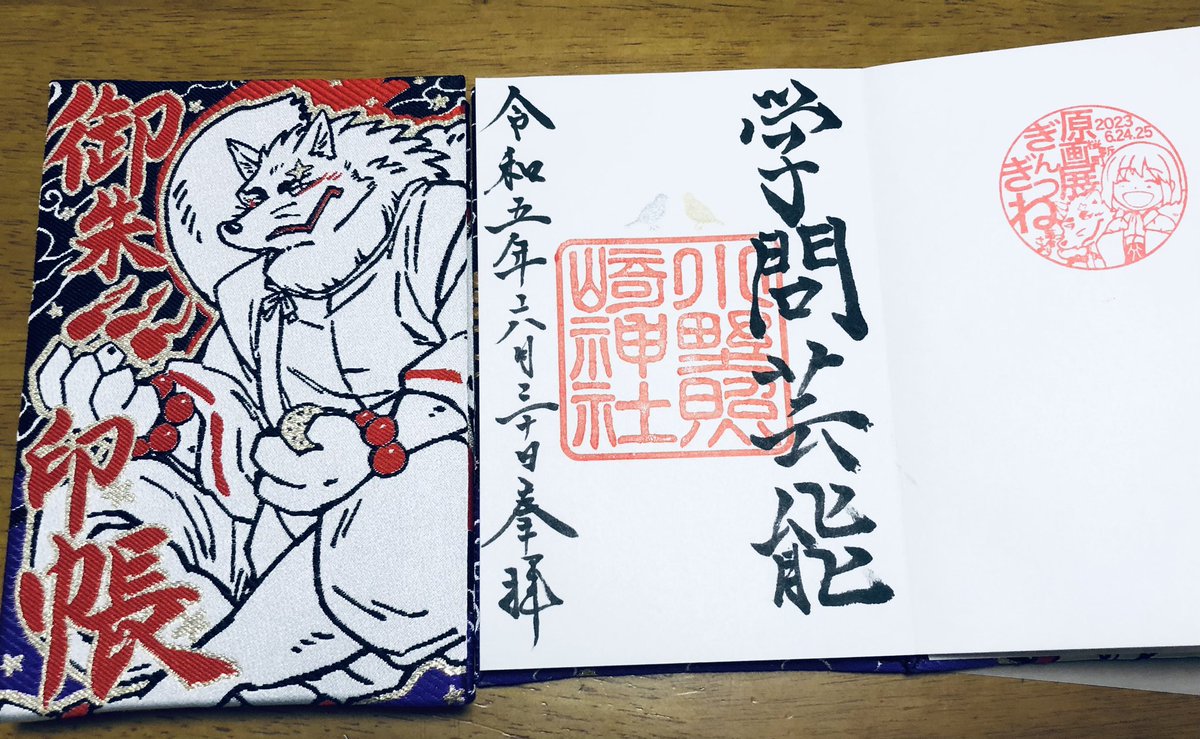 御朱印帳
学問芸能
小野照
崎神社
令和五年六月三十日奉拝
2023
6.24.25
原画展
ぎん
ぎつね